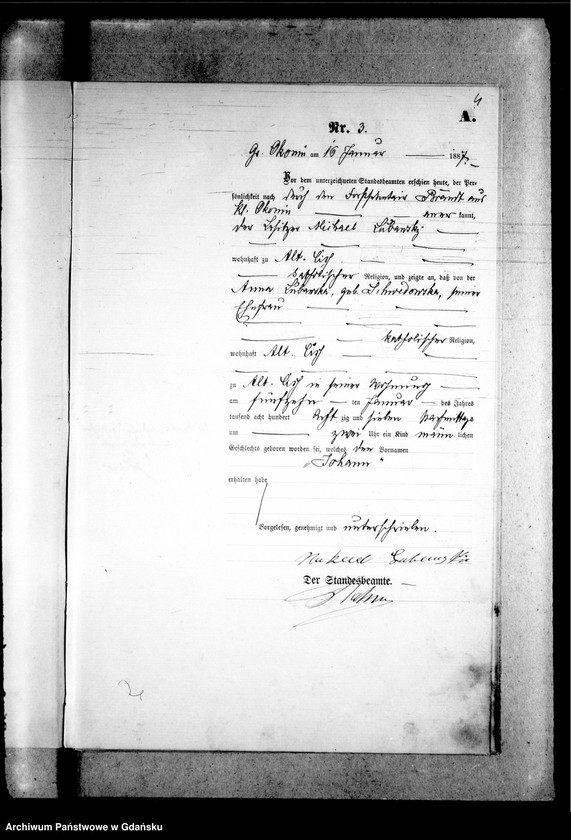 4
A.
Nr. 3.
Gr. Okonin am 16 Januar 1887.
Vor dem unterzeichneten Standesbeamten erschien heute, der Per-
sönlichkeit nach durch den Forstsekretair Brandt aus
Kl. Okonin anerkannt,
der Besitzer Michael Lubansky
wohnhaft zu Alt-Cisch
katholischer Religion, und zeigte an, daß von der
Anna Lubanska, geb. Schwedowska, seiner
Ehefrau
katholischer Religion,
wohnhaft Alt-Cisch
zu Alt-Cisch in seiner Wohnung
am fünfzehn ten Januar des Jahres
tausend acht hundert acht zig und sieben Nachmittags
um zwei Uhr ein Kind männlichen
Geschlechts geboren worden sei, welches den Vornamen
„Johann“
erhalten habe
Vorgelesen, genehmigt und unterschrieben.
Der Standesbeamte.
Archiwum Państwowe w Gdańsku